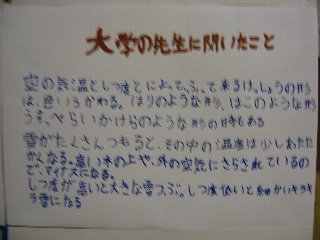 大学の先生に聞いたこと
空の気温としつ度とによってふって来るけっしょうの形
は、色いろかわる。はりのような形、はこのような形
うすべらいかけらのような形の時もある
雪がたくさんつもると、その中の温度は少しあたた
かくなる。高い木の上や、外の空気にさらされているの
で、マイナスになる。
しつ度が高いと大きな雪つぶ。しつ度低いと細かいキラキ
ラ雪になる